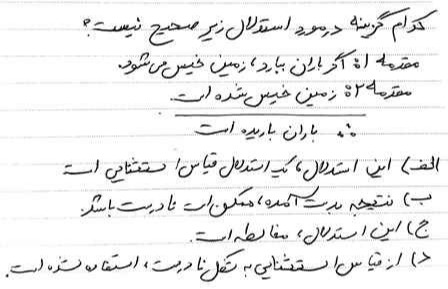 کدام گزینه در مورد استدلال زیر صحیح نیست؟
مقدمه ۱: اگر باران ببارد، زمین خیس می‌شود.
مقدمه ۲: زمین خیس شده است
∴ باران باریده است
الف) این استدلال، یک استدلال قیاس استثنایی است
ب) نتیجه بدست آمده، ممکن است نادرست باشد.
ج) این استدلال، مغالطه است.
د) از قیاس استثنایی به شکل نادرست، استفاده شده است.